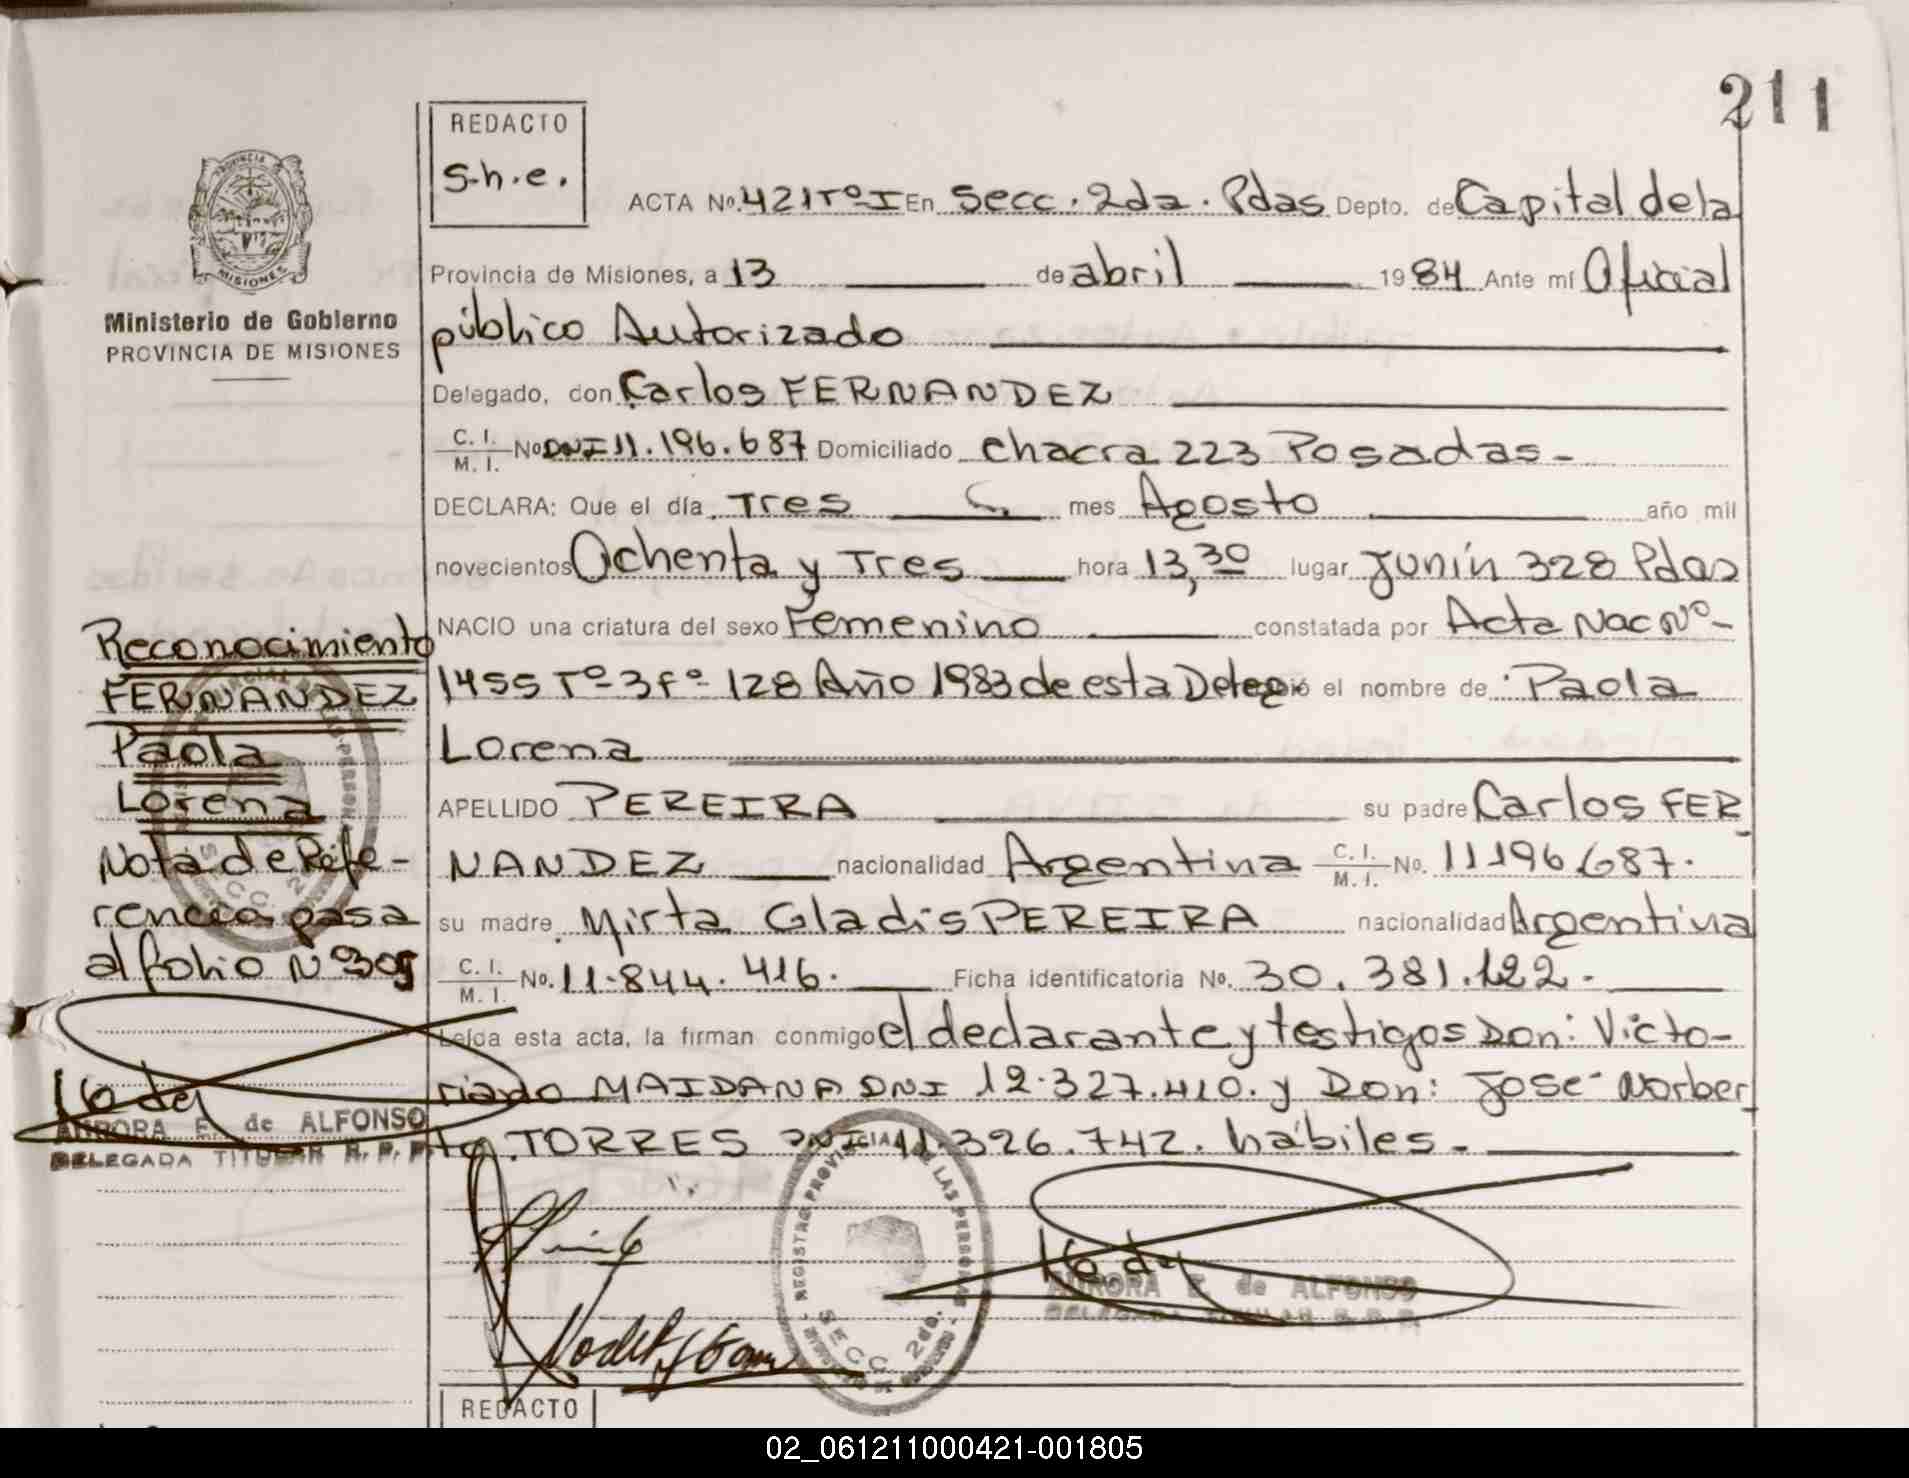 211
REDACTO
S.h.e.
ACTA No. 421 Tº I En Secc. 2da. Pdas Depto. de Capital de la
Provincia de Misiones, a 13 de abril 1984 Ante mí Oficial
público Autorizado
Delegado, don Carlos FERNANDEZ
C. I.
M. I. No DNI 11.196.687 Domiciliado chacra 223 Posadas-
DECLARA: Que el día Tres mes Agosto año mil
novecientos Ochenta y Tres hora 13,30 lugar Junín 328 Pdas
NACIO una criatura del sexo Femenino constatada por Acta Nac Nº-
1455 Tº 3 fº 128 Año 1983 de esta Deleg. el nombre de Paola
Lorena
APELLIDO PEREIRA su padre Carlos FER
NANDEZ nacionalidad Argentina C. I.
M. I. No. 11196.687.
su madre Mirta Gladis PEREIRA nacionalidad Argentina
C. I.
M. I. No. 11.844.416. Ficha identificatoria No. 30.381.122.-
Leída esta acta, la firman conmigo el declarante y testigos Don: Victo-
riano MAIDANA DNI 12.327.410. y Don: José Norber
to TORRES DNI 11.326.742. hábiles.-
PROVINCIA
MISIONES
Ministerio de Gobierno
PROVINCIA DE MISIONES
Reconocimiento
FERNANDEZ
Paola
Lorena
Nota de Refe-
rencia pasa
al folio Nº 305
AURORA E. de ALFONSO
DELEGADA TITULAR R. P. P.
REGISTRO PROVINCIAL DE LAS PERSONAS
SECC. 2da.
AURORA E. de ALFONSO
DELEGADA TITULAR R. P. P.
REDACTO
02_061211000421-001805